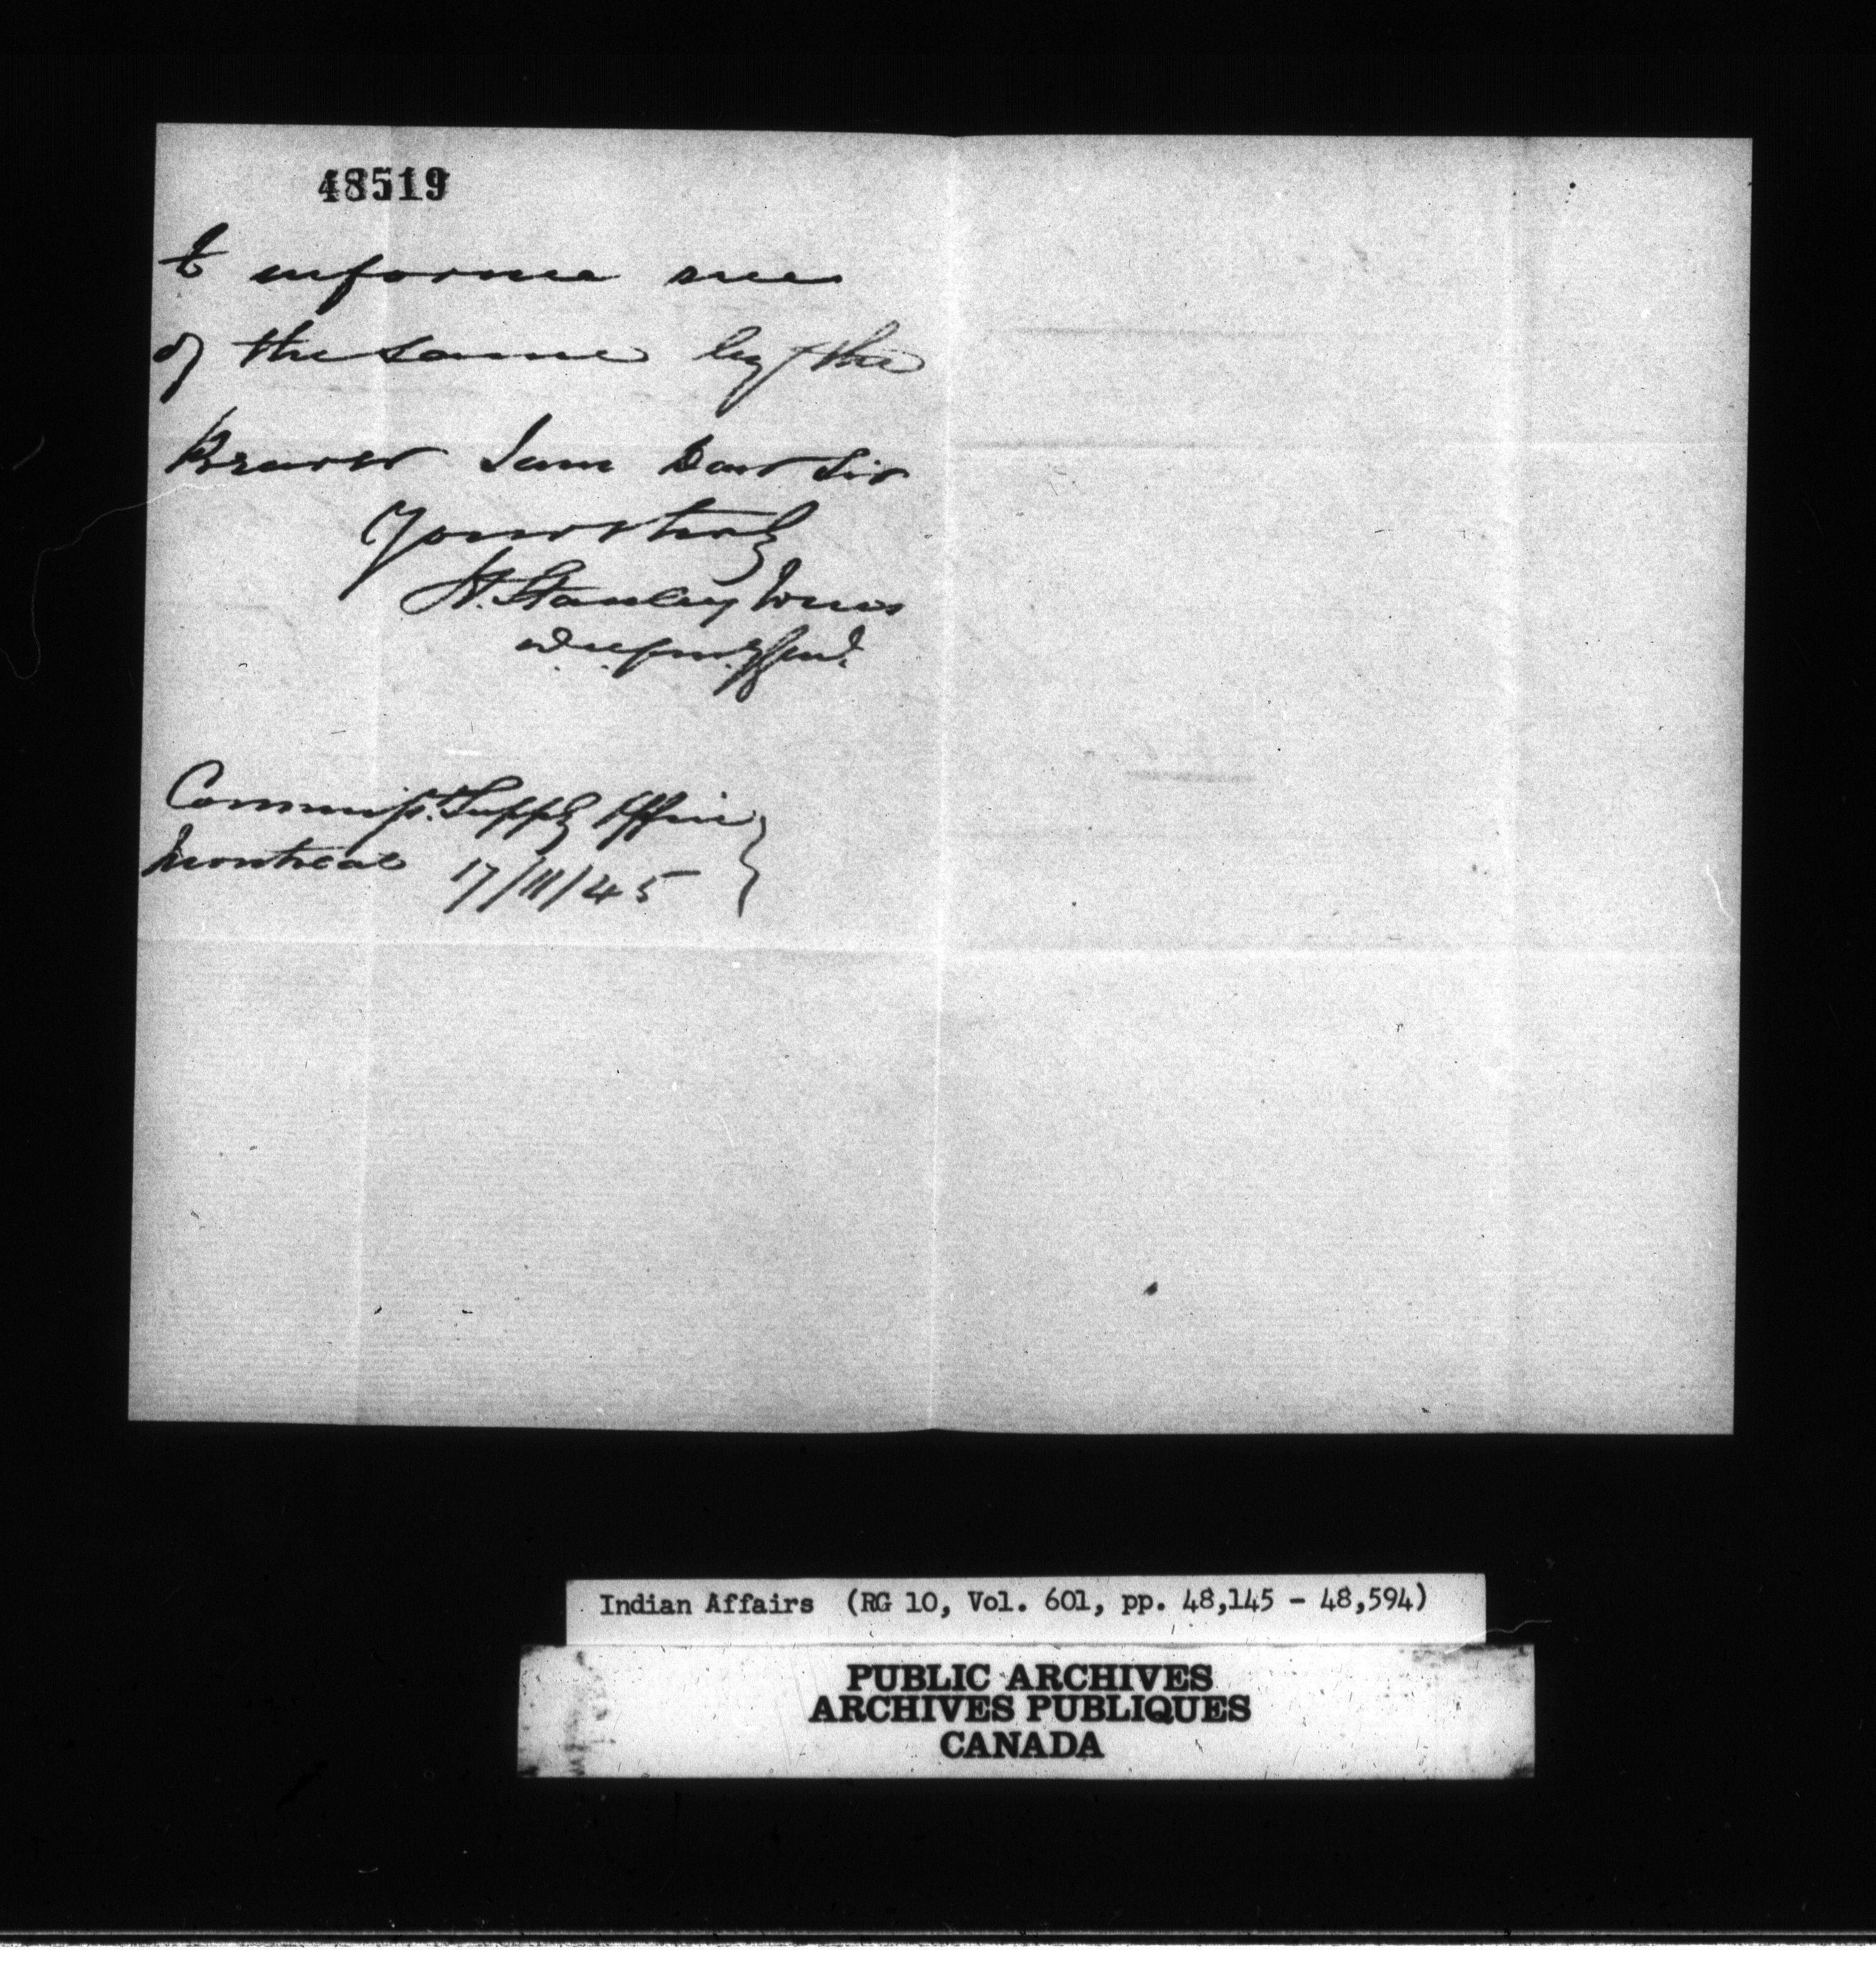 48519
to informe me
of the same by the
Bearer I am Dear Sir
Yours truly
H. Stanley Jones
Commisst. Supply Office
Montreal 17/11/45
Indian Affairs (RG 10, Vol. 601, pp. 48,145 - 48,594)
PUBLIC ARCHIVES
ARCHIVES PUBLIQUES
CANADA